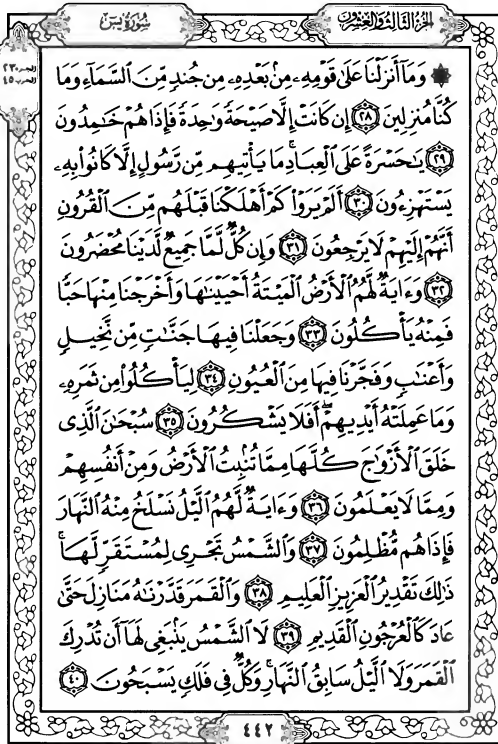 الجزء الثالث والعشرون
سورة يس
الجزء ٢٣
الحزب ٤٥
۞ وَمَآ أَنزَلْنَا عَلَىٰ قَوْمِهِۦ مِنۢ بَعْدِهِۦ مِن جُندٍ مِّنَ السَّمَآءِ وَمَا
كُنَّا مُنزِلِينَ ٢٨ إِن كَانَتْ إِلَّا صَيْحَةً وَٰحِدَةً فَإِذَا هُمْ خَٰمِدُونَ
٢٩ يَٰحَسْرَةً عَلَى الْعِبَادِ ۚ مَا يَأْتِيهِم مِّن رَّسُولٍ إِلَّا كَانُوا۟ بِهِۦ
يَسْتَهْزِءُونَ ٣٠ أَلَمْ يَرَوْا۟ كَمْ أَهْلَكْنَا قَبْلَهُم مِّنَ الْقُرُونِ
أَنَّهُمْ إِلَيْهِمْ لَا يَرْجِعُونَ ٣١ وَإِن كُلٌّ لَّمَّا جَمِيعٌ لَّدَيْنَا مُحْضَرُونَ
٣٢ وَءَايَةٌ لَّهُمُ الْأَرْضُ الْمَيْتَةُ أَحْيَيْنَٰهَا وَأَخْرَجْنَا مِنْهَا حَبًّا
فَمِنْهُ يَأْكُلُونَ ٣٣ وَجَعَلْنَا فِيهَا جَنَّٰتٍ مِّن نَّخِيلٍ
وَأَعْنَٰبٍ وَفَجَّرْنَا فِيهَا مِنَ الْعُيُونِ ٣٤ لِيَأْكُلُوا۟ مِن ثَمَرِهِۦ
وَمَا عَمِلَتْهُ أَيْدِيهِمْ ۖ أَفَلَا يَشْكُرُونَ ٣٥ سُبْحَٰنَ الَّذِى
خَلَقَ الْأَزْوَٰجَ كُلَّهَا مِمَّا تُنۢبِتُ الْأَرْضُ وَمِنْ أَنفُسِهِمْ
وَمِمَّا لَا يَعْلَمُونَ ٣٦ وَءَايَةٌ لَّهُمُ الَّيْلُ نَسْلَخُ مِنْهُ النَّهَارَ
فَإِذَا هُم مُّظْلِمُونَ ٣٧ وَالشَّمْسُ تَجْرِى لِمُسْتَقَرٍّ لَّهَا ۚ
ذَٰلِكَ تَقْدِيرُ الْعَزِيزِ الْعَلِيمِ ٣٨ وَالْقَمَرَ قَدَّرْنَٰهُ مَنَازِلَ حَتَّىٰ
عَادَ كَالْعُرْجُونِ الْقَدِيمِ ٣٩ لَا الشَّمْسُ يَنۢبَغِى لَهَآ أَن تُدْرِكَ
الْقَمَرَ وَلَا الَّيْلُ سَابِقُ النَّهَارِ ۚ وَكُلٌّ فِى فَلَكٍ يَسْبَحُونَ ٤٠
٤٤٢